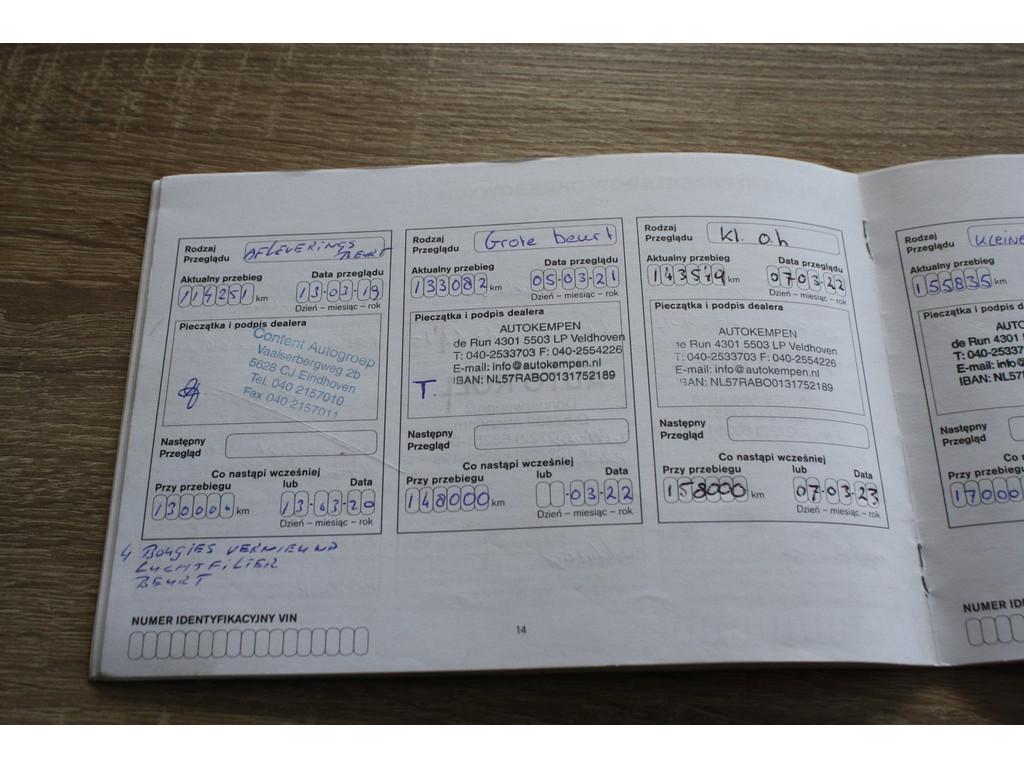 Rodzaj Przeglądu
AFLEVERINGS BEURT
Aktualny przebieg
Data przeglądu
114251 km
13-03-19
Dzień – miesiąc – rok
Pieczątka i podpis dealera
Content Autogroep
Vaalserbergweg 2b
5628 CJ Eindhoven
Tel. 040 2157010
Fax 040 2157011
Następny Przegląd
Co nastąpi wcześniej
Przy przebiegu
lub
Data
130000 km
13-03-20
Dzień – miesiąc – rok
4 BOUGIES VERNIEUWD
LUCHTFILTER
BEURT
Rodzaj Przeglądu
Grote beurt
Aktualny przebieg
Data przeglądu
133082 km
05-03-21
Dzień – miesiąc – rok
Pieczątka i podpis dealera
AUTOKEMPEN
de Run 4301 5503 LP Veldhoven
T: 040-2533703 F: 040-2554226
E-mail: info@autokempen.nl
IBAN: NL57RABO0131752189
T.
Następny Przegląd
Co nastąpi wcześniej
Przy przebiegu
lub
Data
148000 km
-03-22
Dzień – miesiąc – rok
Rodzaj Przeglądu
Kl. o.h
Aktualny przebieg
Data przeglądu
143579 km
070322
Dzień – miesiąc – rok
Pieczątka i podpis dealera
AUTOKEMPEN
de Run 4301 5503 LP Veldhoven
T: 040-2533703 F: 040-2554226
E-mail: info@autokempen.nl
IBAN: NL57RABO0131752189
Następny Przegląd
Co nastąpi wcześniej
Przy przebiegu
lub
Data
158000 km
07-03-23
Dzień – miesiąc – rok
NUMER IDENTYFIKACYJNY VIN
14
Rodzaj Przeglądu
Kleine
Aktualny przebieg
155835 km
Pieczątka i podpis d
AUTO
de Run 430
T: 040-2533
E-mail: info@
IBAN: NL57
Następny Przegląd
Co na
Przy przebiegu
17000
NUMER ID